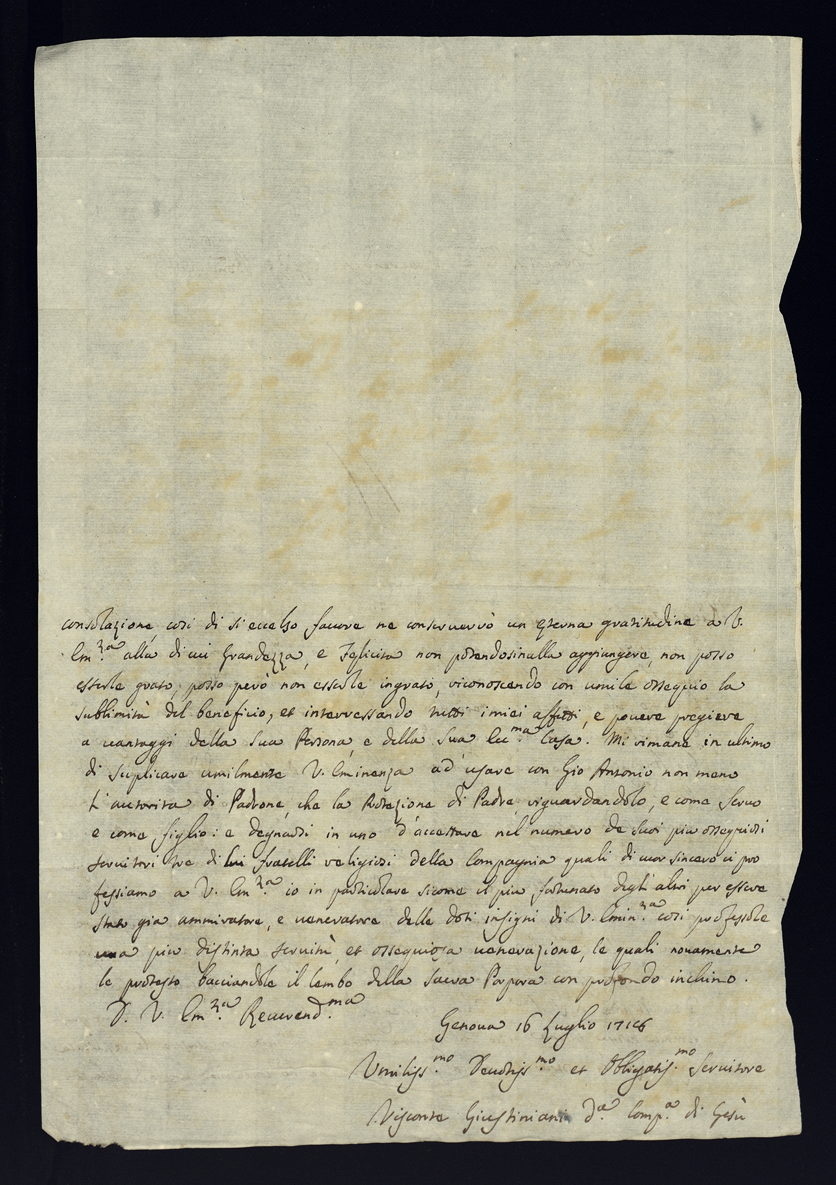 consolazione, così di sì eccelso favore ne conserverò un eterna gratitudine a V.
Em.nza alla di cui Grandezza, e Felicità non potendosi nulla aggiungere, non posso
esserle grato, posso però non esserle ingrato, riconoscendo con umile ossequio la
sublimità del beneficio, et interressando tutti i miei affetti, e povere preghiere
a vantaggi della Sua Persona, e della Sua Ecc.ma Casa. Mi rimane in ultimo
di suplicare umilmente V. Eminenza ad usare con Gio Antonio non meno
L'autorità di Padrone, che la Protezione di Padre, riguardandolo, e come servo
e come figlio: e degnarsi in uno d'accettare nel numero de suoi più ossequiosi
servitori tre di lui fratelli religiosi della Compagnia quali di cuor sincero ci pro
fessiamo a V. Em.nza io in particolare sicome il più fortunato degli altri per essere
stato già ammiratore, e veneratore delle doti insigni di V. Emin.za così professole
una più distinta servitù, et ossequiosa venerazione, le quali novamente
le protesto bacciandole il lembo della Sacra Porpora con profondo inchino.
D. V. Em.nza Reverend.ma
Genova 16 Luglio 1716
Umiliss.mo Devotiss.mo et Obligatiss.mo Servitore
Visconte Giustiniani d.a Comp.a di Gesù